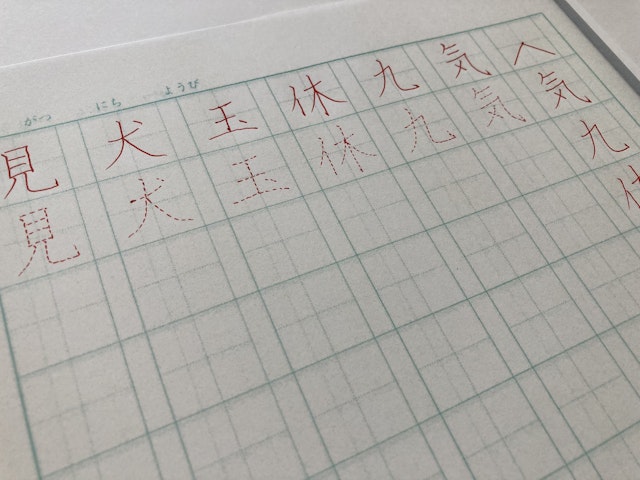 がつ にち ようび
へ気九休
気気
九九
休休
玉玉
犬犬
見見